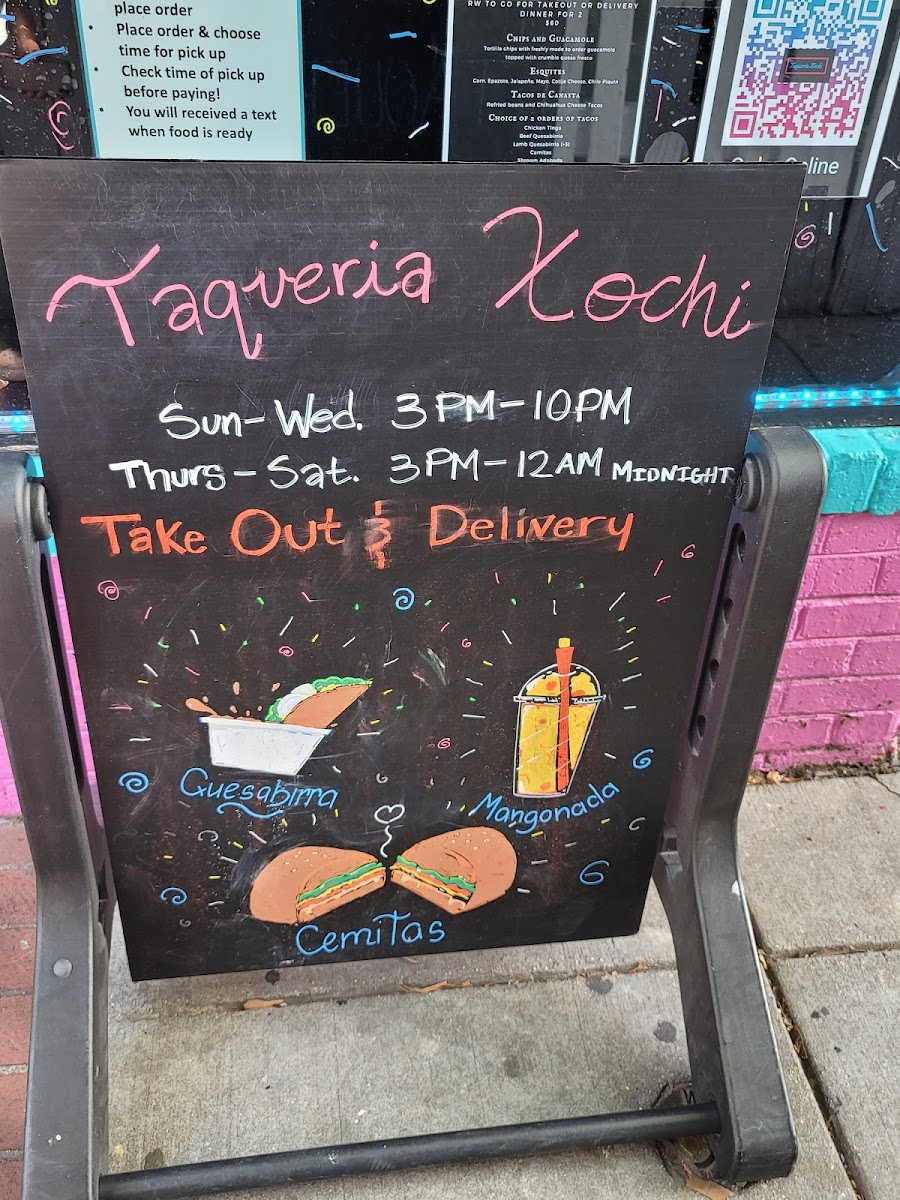 place order
• Place order & choose
time for pick up
• Check time of pick up
before paying!
• You will received a text
when food is ready
RW TO GO FOR TAKEOUT OR DELIVERY
DINNER FOR 2
$60
CHIPS AND GUACAMOLE
Tortilla chips with freshly made to order guacamole
topped with crumble queso fresco
ESQUITES
Corn, Epazote, Jalapeño, Mayo, Cotija Cheese, Chile Piquin
TACOS DE CANASTA
Refried beans and Chihuahua Cheese Tacos
CHOICE OF 2 ORDERS OF TACOS
Chicken Tinga
Beef Quesabirria
Lamb Quesabirria (+3)
Carnitas
Shroom Adobada
Taqueria Xochi
Order Online
Taqueria Xochi
Sun-Wed. 3PM-10PM
Thurs-Sat. 3PM-12AM MIDNIGHT
Take Out & Delivery
Quesabirra
Mangonada
Cemitas